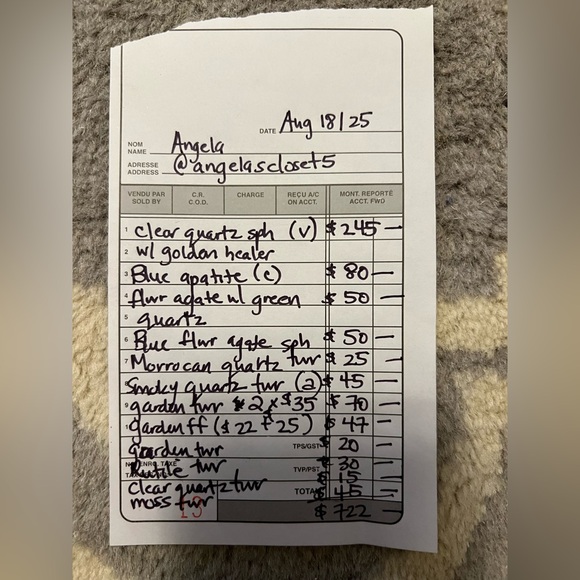 DATE Aug 18/25
NOM
NAME Angela
ADRESSE
ADDRESS @angelascloset5
VENDU PAR
SOLD BY
C.R.
C.O.D.
CHARGE
REÇU A/C
ON ACCT.
MONT. REPORTÉ
ACCT. FWD
1 Clear quartz sph (v) $245 —
2 w/ golden healer
3 Blue apatite (c) $80 —
4 flwr agate w/ green $50 —
5 quartz
6 Blue flwr agate sph $50 —
7 Morrocan quartz twr $25 —
Smoky quartz twr (a) $45 —
9 garden twr 2 x $35 $70 —
garden ff ($22 + 25) $47 —
garden twr TPS/GST $20 —
twr TVP/PST $30 —
clear quartz twr $15 —
moss twr TOTAL $45 —
19 $722 —